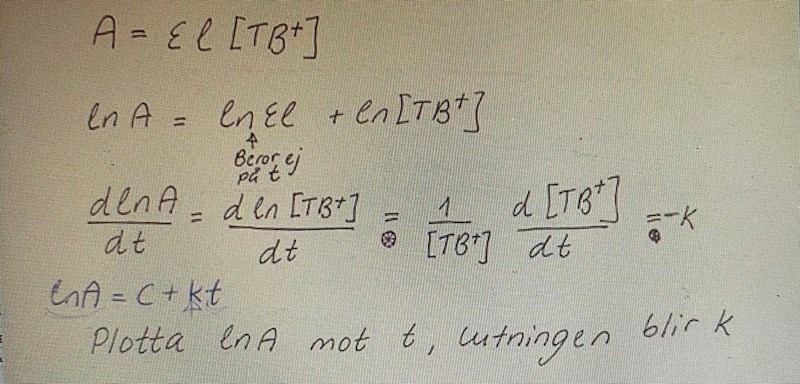 A = εl [TB⁺]
ln A = ln εl + ln [TB⁺]
Beror ej
på t
d ln A / dt = d ln [TB⁺] / dt =⊛ 1 / [TB⁺] d [TB⁺] / dt =⊛ -k
ln A = C + kt
Plotta ln A mot t, lutningen blir k